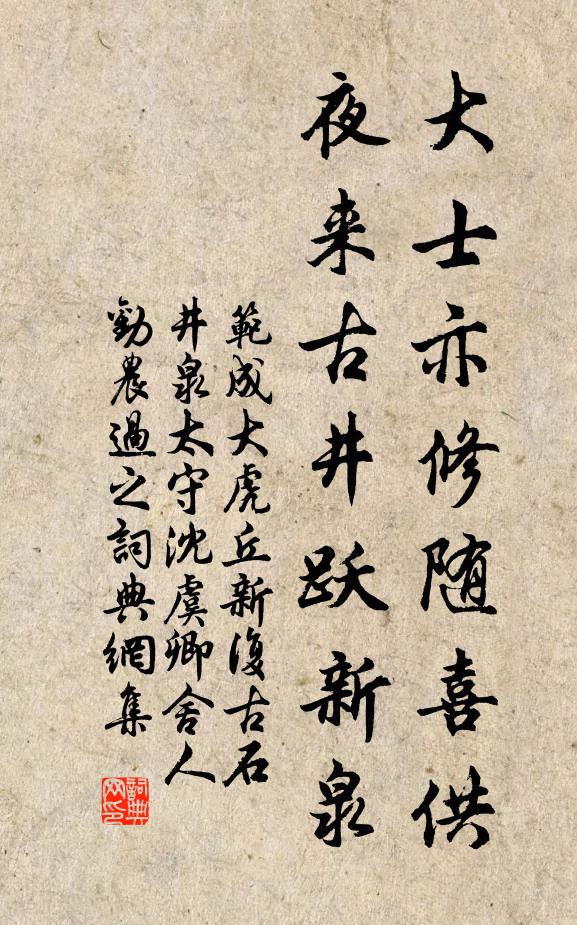 大士亦修随喜供
夜来古井跃新泉
範成大虎丘新復古石
井泉太守沈虞卿舍人
勸農過之詞典網集
詞典网印